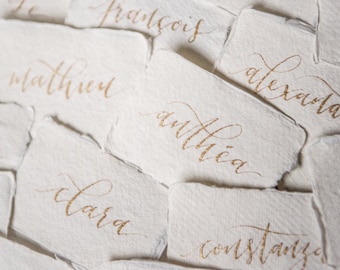 françois
mathieu
alexand
anthéa
clara
constanze